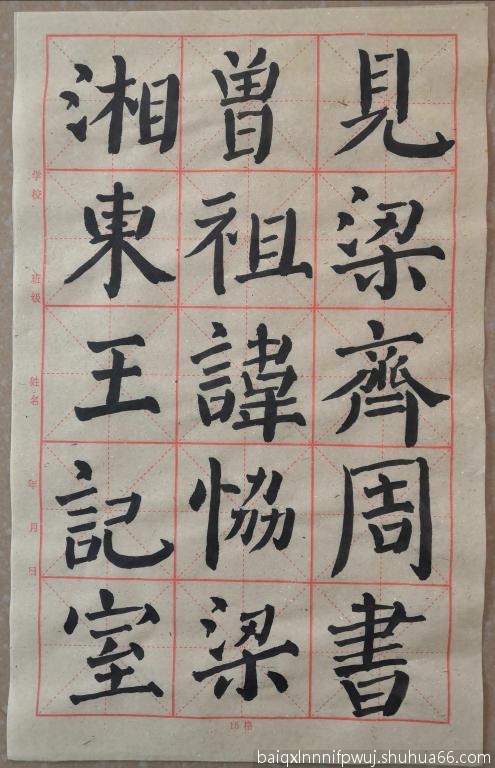 見梁齊周書
曾祖諱恊梁
湘東王記室
学校
班级
姓名
年月日
15格
baiqxlnnnifpwuj.shuhua66.com